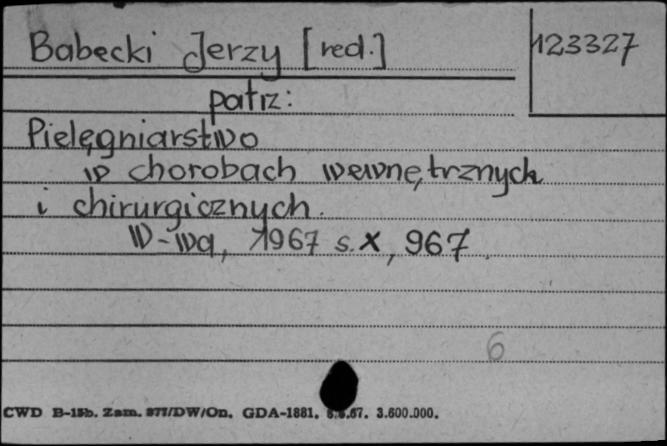 Babecki Jerzy [red.]
123327
patrz:
Pielęgniarstwo
w chorobach wewnętrznych
i chirurgicznych.
W-wa, 1967 s. X, 967
6
CWD B-15b. Zam. 977/DW/On. GDA-1881. 3.600.000.